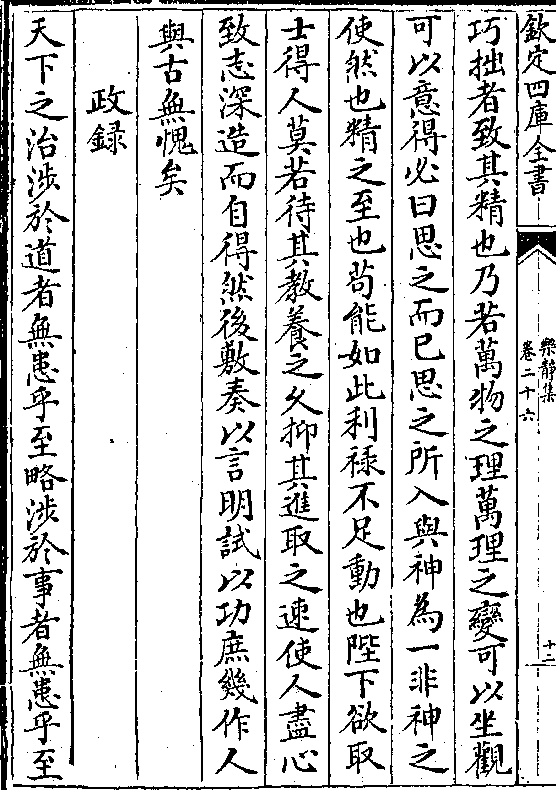 欽定四庫全書
樂静集
卷二十六
十二
巧拙者致其精也乃若萬物之理萬理之變可以坐觀
可以意得必曰思之而已思之所入與神為一非神之
使然也精之至也茍能如此利禄不足動也陛下欲取
士得人莫若待其教養之久抑其進取之速使人盡心
致志深造而自得然後敷奏以言明試以功庶幾作人
與古無愧矣
政録
天下之治涉於道者無患乎至略涉於事者無患乎至